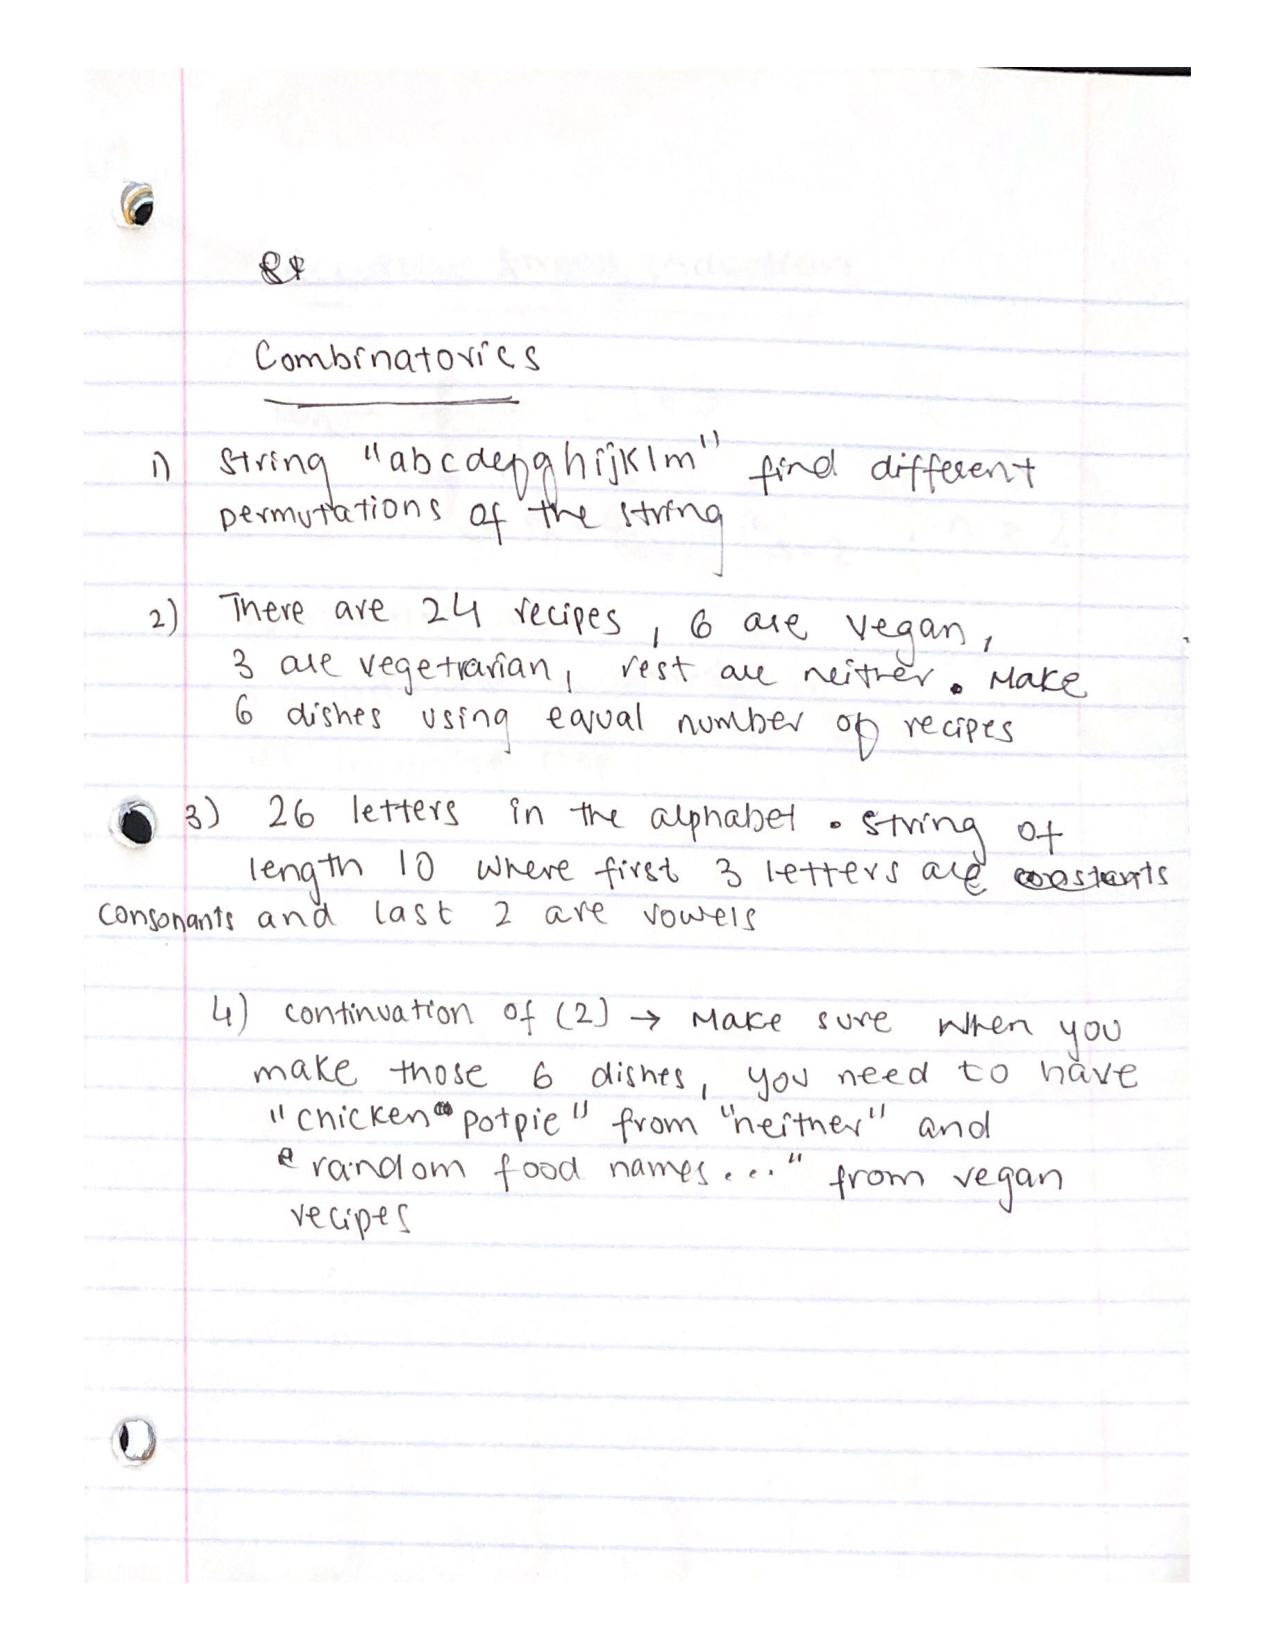 Combinatorics
1) string "abcdefghijklm" find different
permutations of the string
2) There are 24 recipes, 6 are vegan,
3 are vegetrarian, rest are neither. Make
6 dishes using equal number of recipes
3) 26 letters in the alphabet. string of
length 10 where first 3 letters are
consonants and last 2 are vowels
4) continuation of (2) → Make sure when you
make those 6 dishes, you need to have
"chicken potpie" from "neither" and
random food names..." from vegan
recipes